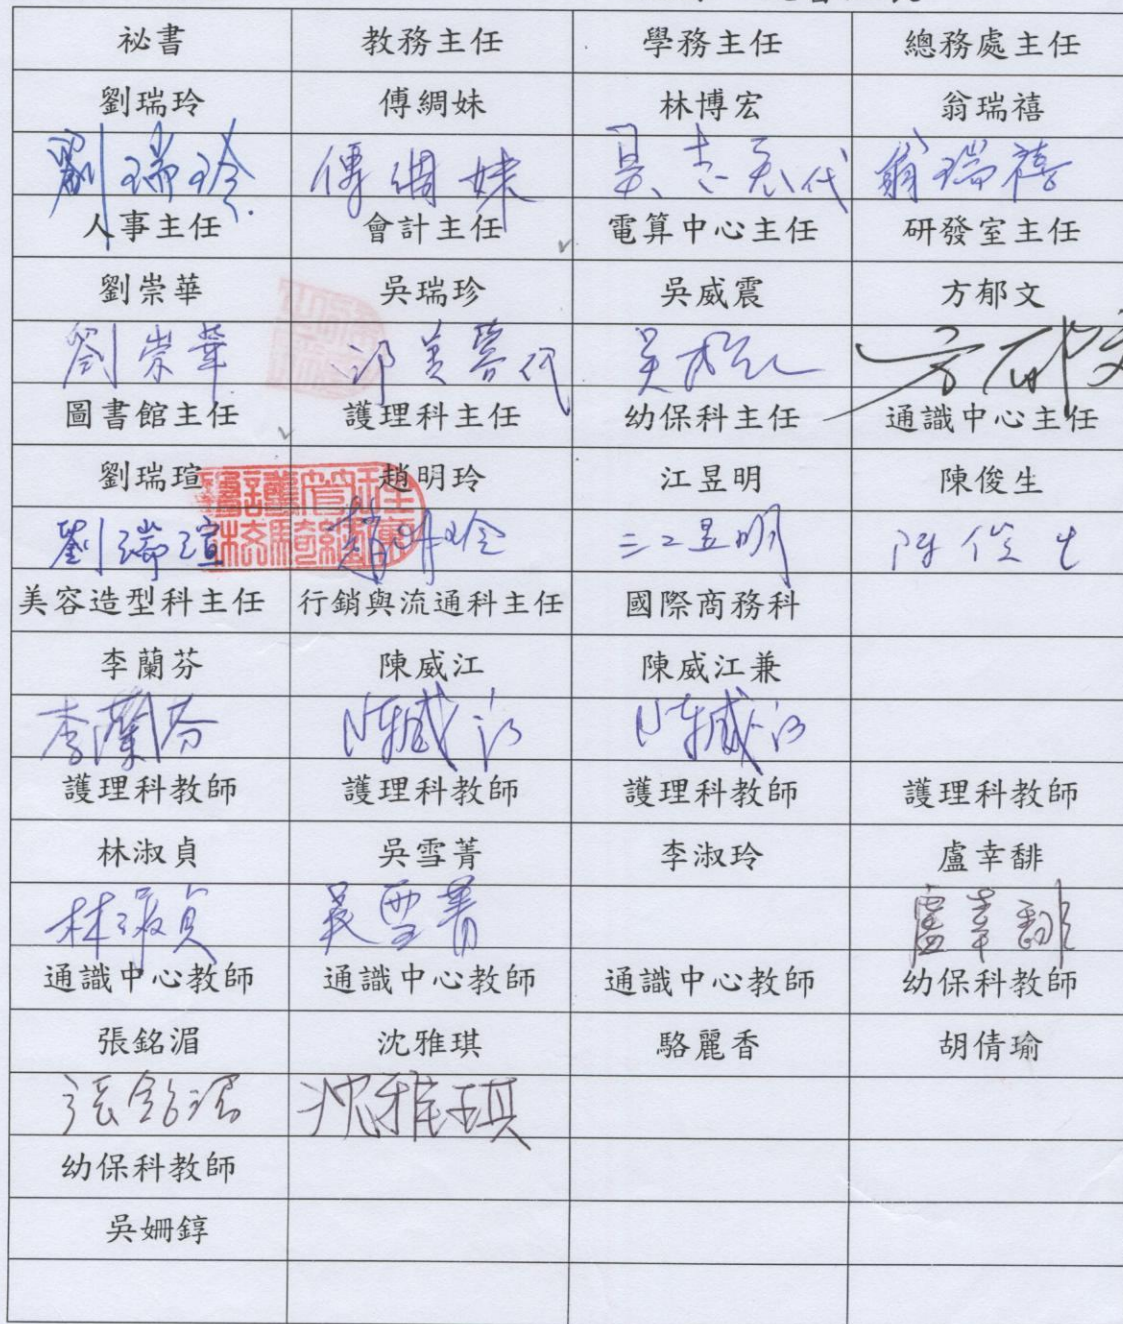 祕書 教務主任 學務主任 總務處主任
劉瑞玲 傅綢妹 林博宏 翁瑞禧
劉瑞玲 傅綢妹 吳志 代 翁瑞禧
人事主任 會計主任 電算中心主任 研發室主任
劉崇華 吳瑞珍 吳威震 方郁文
劉崇華 邱美蓉代 吳 方郁文
圖書館主任 護理科主任 幼保科主任 通識中心主任
劉瑞瑄 趙明玲 江昱明 陳俊生
劉瑞瑄 趙明玲 江昱明 陳俊生
美容造型科主任 行銷與流通科主任 國際商務科
李蘭芬 陳威江 陳威江兼
李蘭芬 陳威江 陳威江
護理科教師 護理科教師 護理科教師 護理科教師
林淑貞 吳雪菁 李淑玲 盧幸馡
林淑貞 吳雪菁 盧幸馡
通識中心教師 通識中心教師 通識中心教師 幼保科教師
張銘湄 沈雅琪 駱麗香 胡倩瑜
張銘湄 沈雅琪
幼保科教師
吳姍錞